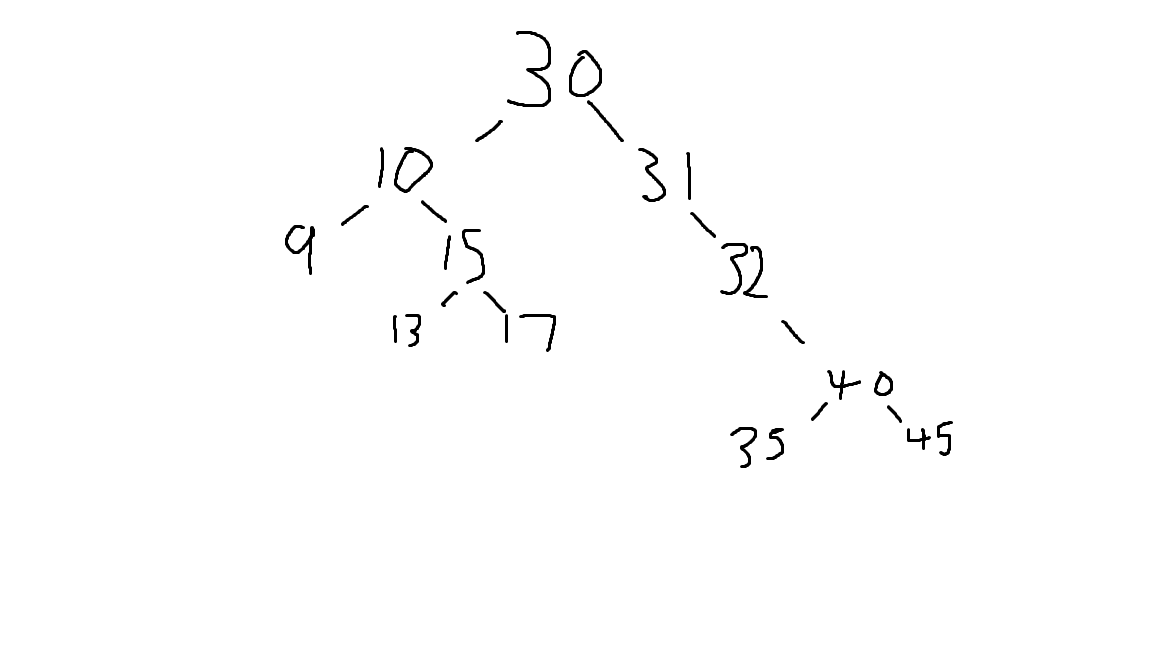 30
10 31
9 15 32
13 17
40
35 45